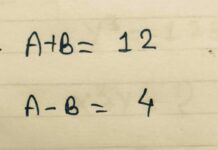 A+B = 12
A - B = 4